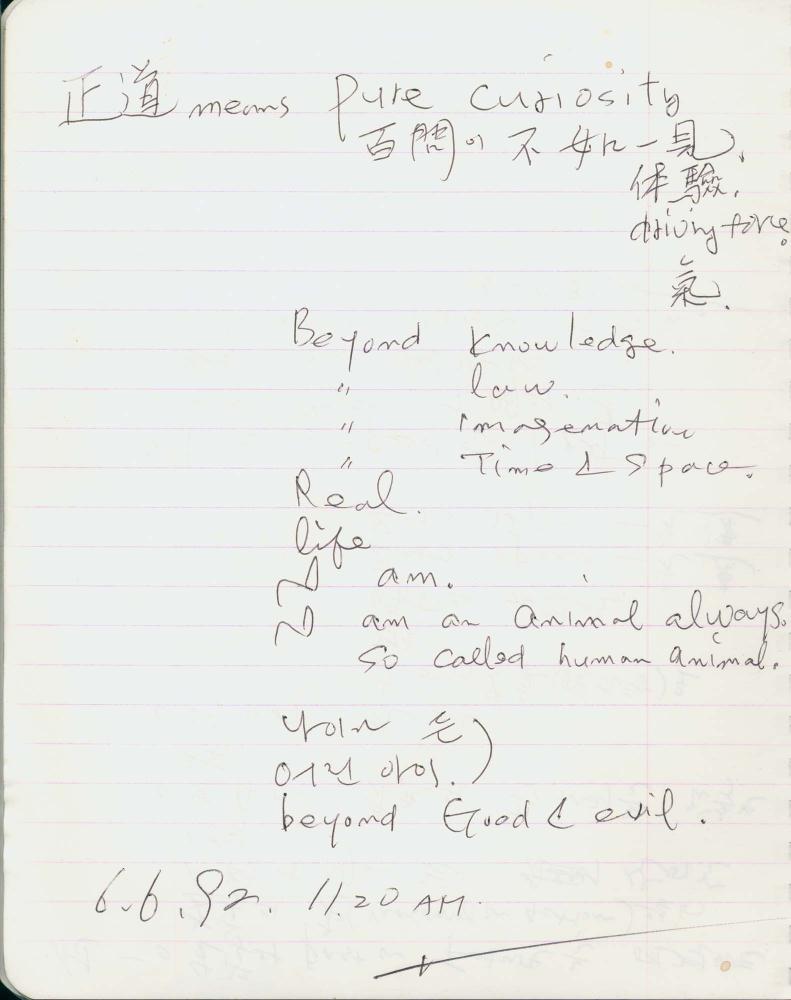 正道 means Pure curiosity
百聞이 不如一見.
体驗.
driving force.
氣.
Beyond knowledge.
" law.
" imagenation
" Time & Space.
Real.
life
I am.
I am an animal always.
so called human animal.
나이 든
어린 아이.
beyond Good & evil.
6.6.92. 11.20 AM.